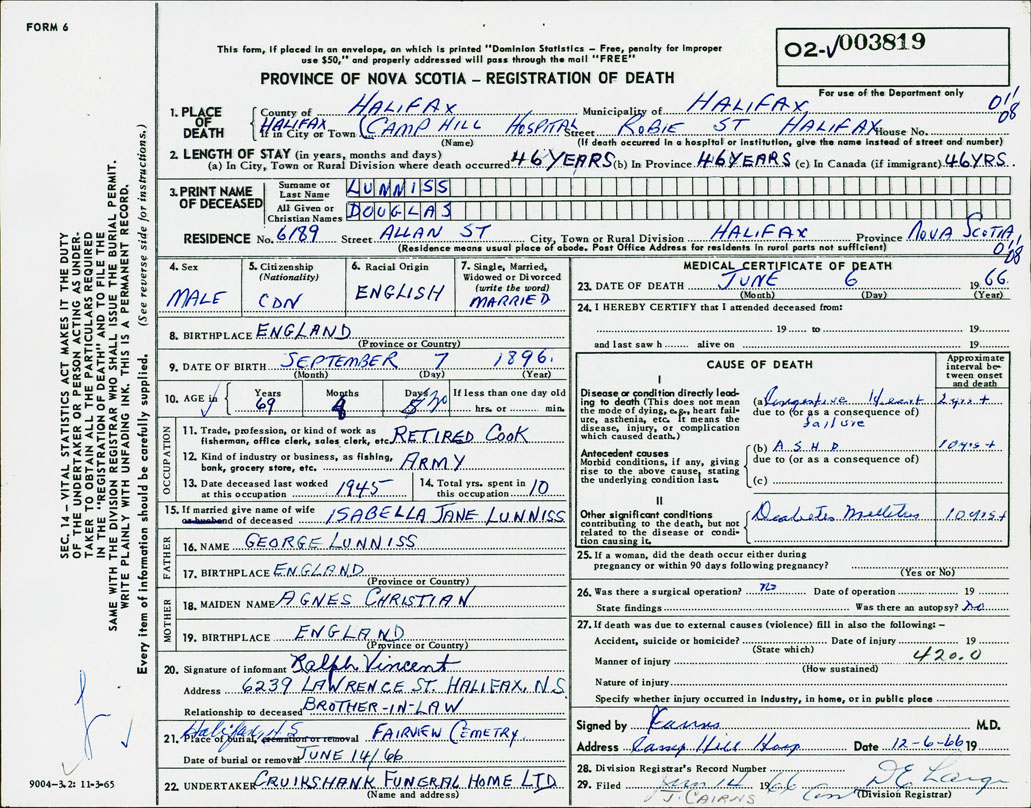 FORM 6
This form, if placed in an envelope, on which is printed "Dominion Statistics – Free, penalty for improper
use $50," and properly addressed will pass through the mail "FREE"
PROVINCE OF NOVA SCOTIA – REGISTRATION OF DEATH
02-003819
For use of the Department only
SEC. 14 – VITAL STATISTICS ACT MAKES IT THE DUTY
OF THE UNDERTAKER OR PERSON ACTING AS UNDER-
TAKER TO OBTAIN ALL THE PARTICULARS REQUIRED
IN THE "REGISTRATION OF DEATH" AND TO FILE THE
SAME WITH THE DIVISION REGISTRAR WHO SHALL ISSUE THE BURIAL PERMIT.
WRITE PLAINLY WITH UNFADING INK. THIS IS A PERMANENT RECORD.
Every item of information should be carefully supplied. (See reverse side for instructions.)
1. PLACE OF DEATH
County of HALIFAX Municipality of HALIFAX 011
08
HALIFAX
If in City or Town (CAMP HILL HOSPITAL Street ROBIE ST HALIFAX House No.
(Name) (If death occurred in a hospital or institution, give the name instead of street and number)
2. LENGTH OF STAY (in years, months and days)
(a) In City, Town or Rural Division where death occurred 46 YEARS (b) In Province 46 YEARS (c) In Canada (if immigrant) 46 YRS.
3. PRINT NAME OF DECEASED
Surname or Last Name LUNNISS
All Given or Christian Names DOUGLAS
RESIDENCE No. 6189 Street ALLAN ST City, Town or Rural Division HALIFAX Province NOVA SCOTIA
(Residence means usual place of abode. Post Office Address for residents in rural parts not sufficient)
4. Sex
MALE
5. Citizenship
(Nationality)
CDN
6. Racial Origin
ENGLISH
7. Single, Married,
Widowed or Divorced
(write the word)
MARRIED
8. BIRTHPLACE ENGLAND
(Province or Country)
9. DATE OF BIRTH SEPTEMBER 7 1896.
(Month) (Day) (Year)
10. AGE in
Years Months Days If less than one day old
69 8 hrs. or min.
OCCUPATION
11. Trade, profession, or kind of work as
fisherman, office clerk, sales clerk, etc. RETIRED COOK
12. Kind of industry or business, as fishing,
bank, grocery store, etc. ARMY
13. Date deceased last worked
at this occupation 1945
14. Total yrs. spent in
this occupation 10
15. If married give name of wife
or husband of deceased ISABELLA JANE LUNNISS
FATHER
16. NAME GEORGE LUNNISS
17. BIRTHPLACE ENGLAND
(Province or Country)
MOTHER
18. MAIDEN NAME AGNES CHRISTIAN
19. BIRTHPLACE ENGLAND
(Province or Country)
20. Signature of informant Ralph Vincent
Address 6239 LAWRENCE ST. HALIFAX, N.S
Relationship to deceased BROTHER-IN-LAW
Halifax, N.S
21. Place of burial, cremation or removal FAIRVIEW CEMETRY
Date of burial or removal JUNE 14/66
22. UNDERTAKER CRUIKSHANK FUNERAL HOME LTD
(Name and address)
9004-3.2: 11-3-65
MEDICAL CERTIFICATE OF DEATH
23. DATE OF DEATH JUNE 6 1966.
(Month) (Day) (Year)
24. I HEREBY CERTIFY that I attended deceased from:
19 to 19
and last saw h alive on 19
CAUSE OF DEATH
Approximate
interval be-
tween onset
and death
I
Disease or condition directly lead-
ing to death (This does not mean
the mode of dying, e.g., heart fail-
ure, asthenia, etc. it means the
disease, injury, or complication
which caused death.)
(a) Congestive Heart 2 yrs +
due to (or as a consequence of)
failure
Antecedent causes
Morbid conditions, if any, giving
rise to the above cause, stating
the underlying condition last.
(b) A S H D 10 yrs +
due to (or as a consequence of)
(c)
II
Other significant conditions
contributing to the death, but not
related to the disease or condi-
tion causing it.
Diabetes Mellitus 10 yrs +
25. If a woman, did the death occur either during
pregnancy or within 90 days following pregnancy?
(Yes or No)
26. Was there a surgical operation? no Date of operation 19
State findings Was there an autopsy? no
27. If death was due to external causes (violence) fill in also the following: –
Accident, suicide or homicide? Date of injury 19
(State which) 420.0
Manner of injury
(How sustained)
Nature of injury
Specify whether injury occurred in industry, in home, or in public place
Signed by M.D.
Address Camp Hill Hosp Date 12-6-66 19
28. Division Registrar's Record Number
29. Filed 14 1966
(Division Registrar)
J. CAIRNS